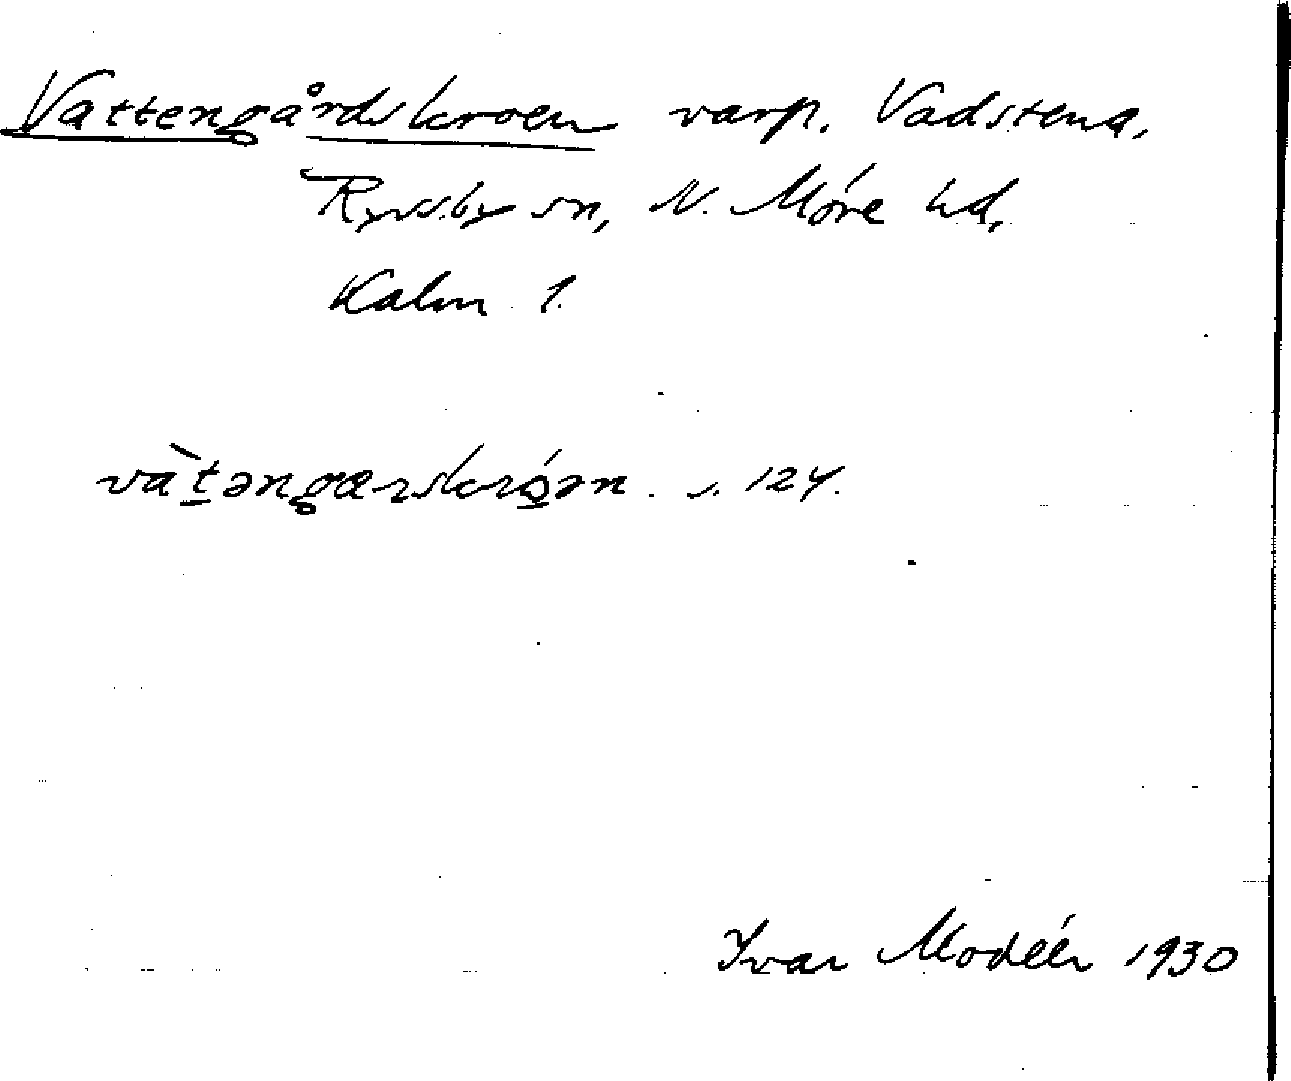 Vattengårdskroen varp. Vadstena,
Ryssby sn, N. Möre hd,
Kalm l.
và̠təngærskró̠ən. s. 124.
Ivar Modéer 1930